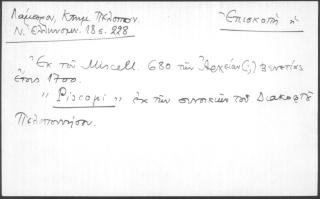 Λάμπρου, Κτημ. Πελοπον.
Ν. Ελληνομν. 18 σ. 228
Επισκοπή η
Ἐκ τοῦ Miscell. 680 τῶν Ἀρχείων(;) Βενετίας
ἔτους 1700.
" Piscopi " ἐκ τῶν συνοικιῶν τοῦ Διακοφτοῦ
Πελοποννήσου.